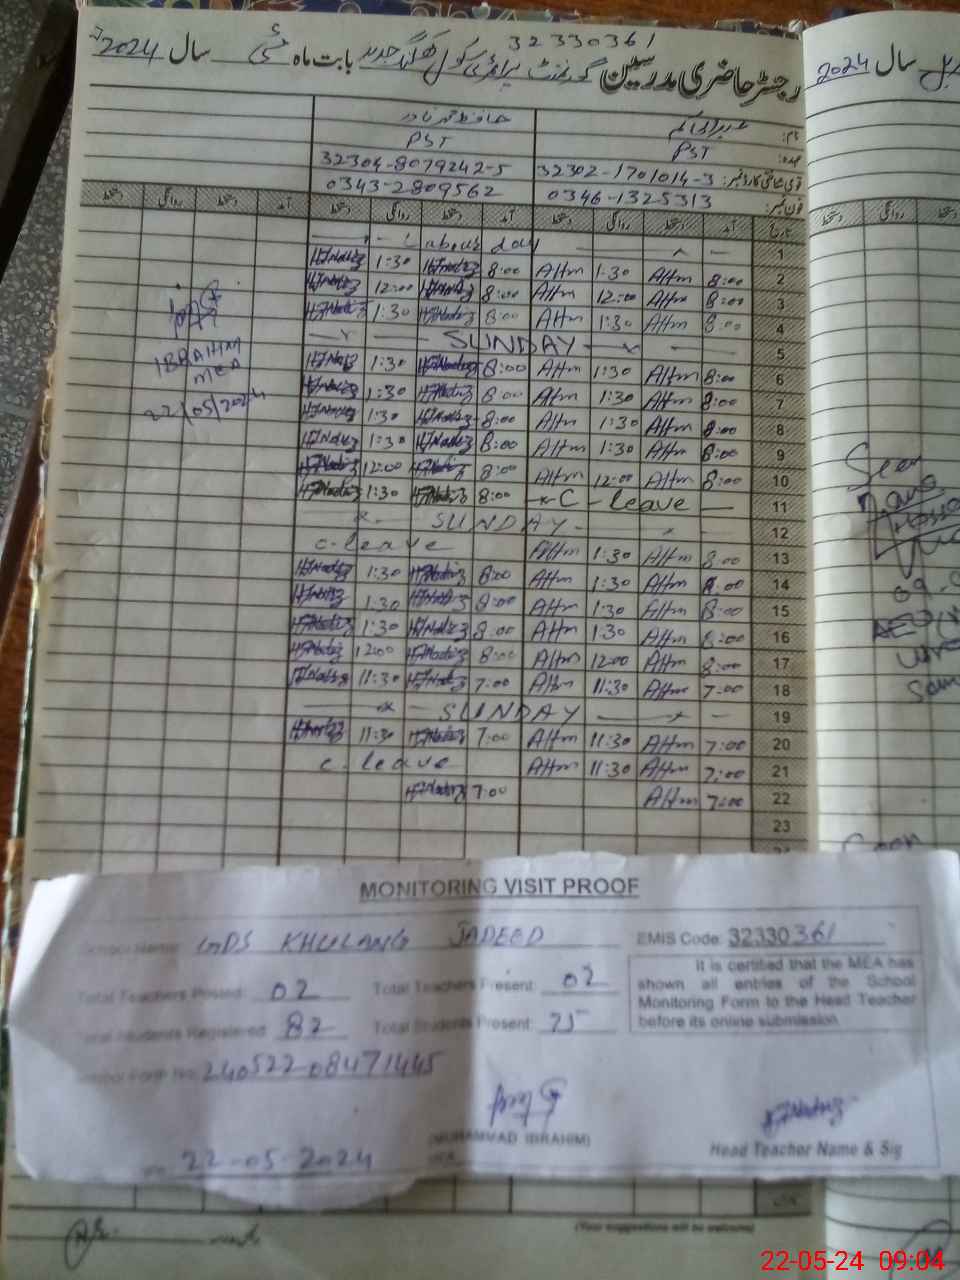 32330361
رجسٹر حاضری مدرسین گورنمنٹ پرائمری سکول کھلنگ جدید بابت ماہ مئی سال 2024
سال 2024
نام:
عہدہ: PST PST
قومی شناختی کارڈ نمبر: 32302-1701014-3 32304-8079242-5
فون نمبر: 0346-1325313 0343-2809562
تاریخ آمد دستخط روانگی دستخط آمد دستخط روانگی دستخط آمد دستخط روانگی دستخط
1 Labour day
2 8:00 AHm 1:30 AHm 8:00 HJNadiz 1:30 HJNadiz
3 8:00 AHm 12:00 AHm 8:00 HJNadiz 12:00 HJNadiz
4 8:00 AHm 1:30 AHm 8:00 HJNadiz 1:30 HJNadiz
5 SUNDAY
6 8:00 AHm 1:30 AHm 8:00 HJNadiz 1:30 HJNadiz
7 8:00 AHm 1:30 AHm 8:00 HJNadiz 1:30 HJNadiz
8 8:00 AHm 1:30 AHm 8:00 HJNadiz 1:30 HJNadiz
9 8:00 AHm 1:30 AHm 8:00 HJNadiz 1:30 HJNadiz
10 8:00 AHm 12:00 AHm 8:00 HJNadiz 12:00 HJNadiz
11 C-leave 8:00 HJNadiz 1:30 HJNadiz
12 SUNDAY
13 8:00 AHm 1:30 AHm C-leave
14 8:00 AHm 1:30 AHm 8:00 HJNadiz 1:30 HJNadiz
15 8:00 AHm 1:30 AHm 8:00 HJNadiz 1:30 HJNadiz
16 8:00 AHm 1:30 AHm 8:00 HJNadiz 1:30 HJNadiz
17 8:00 AHm 12:00 AHm 8:00 HJNadiz 12:00 HJNadiz
18 7:00 AHm 11:30 AHm 7:00 HJNadiz 11:30 HJNadiz
19 SUNDAY
20 7:00 AHm 11:30 AHm 7:00 HJNadiz 11:30 HJNadiz
21 7:00 AHm 11:30 AHm C-leave
22 7:00 AHm 7:00 HJNadiz
23
IBRAHIM
MEA
22/05/2024
Seen
MONITORING VISIT PROOF
School Name: GPS KHULANG JADEED EMIS Code: 32330361
Total Teachers Posted: 02 Total Teachers Present: 02
Total Students Registered: 82 Total Students Present: 75
School Form No: 240522-08471445
It is certified that the MEA has
shown all entries of the School
Monitoring Form to the Head Teacher
before its online submission.
(MUHAMMAD IBRAHIM)
MEA
22-05-2024
Head Teacher Name & Sig
Seen
(Your suggestions will be welcome)
22-05-24 09:04